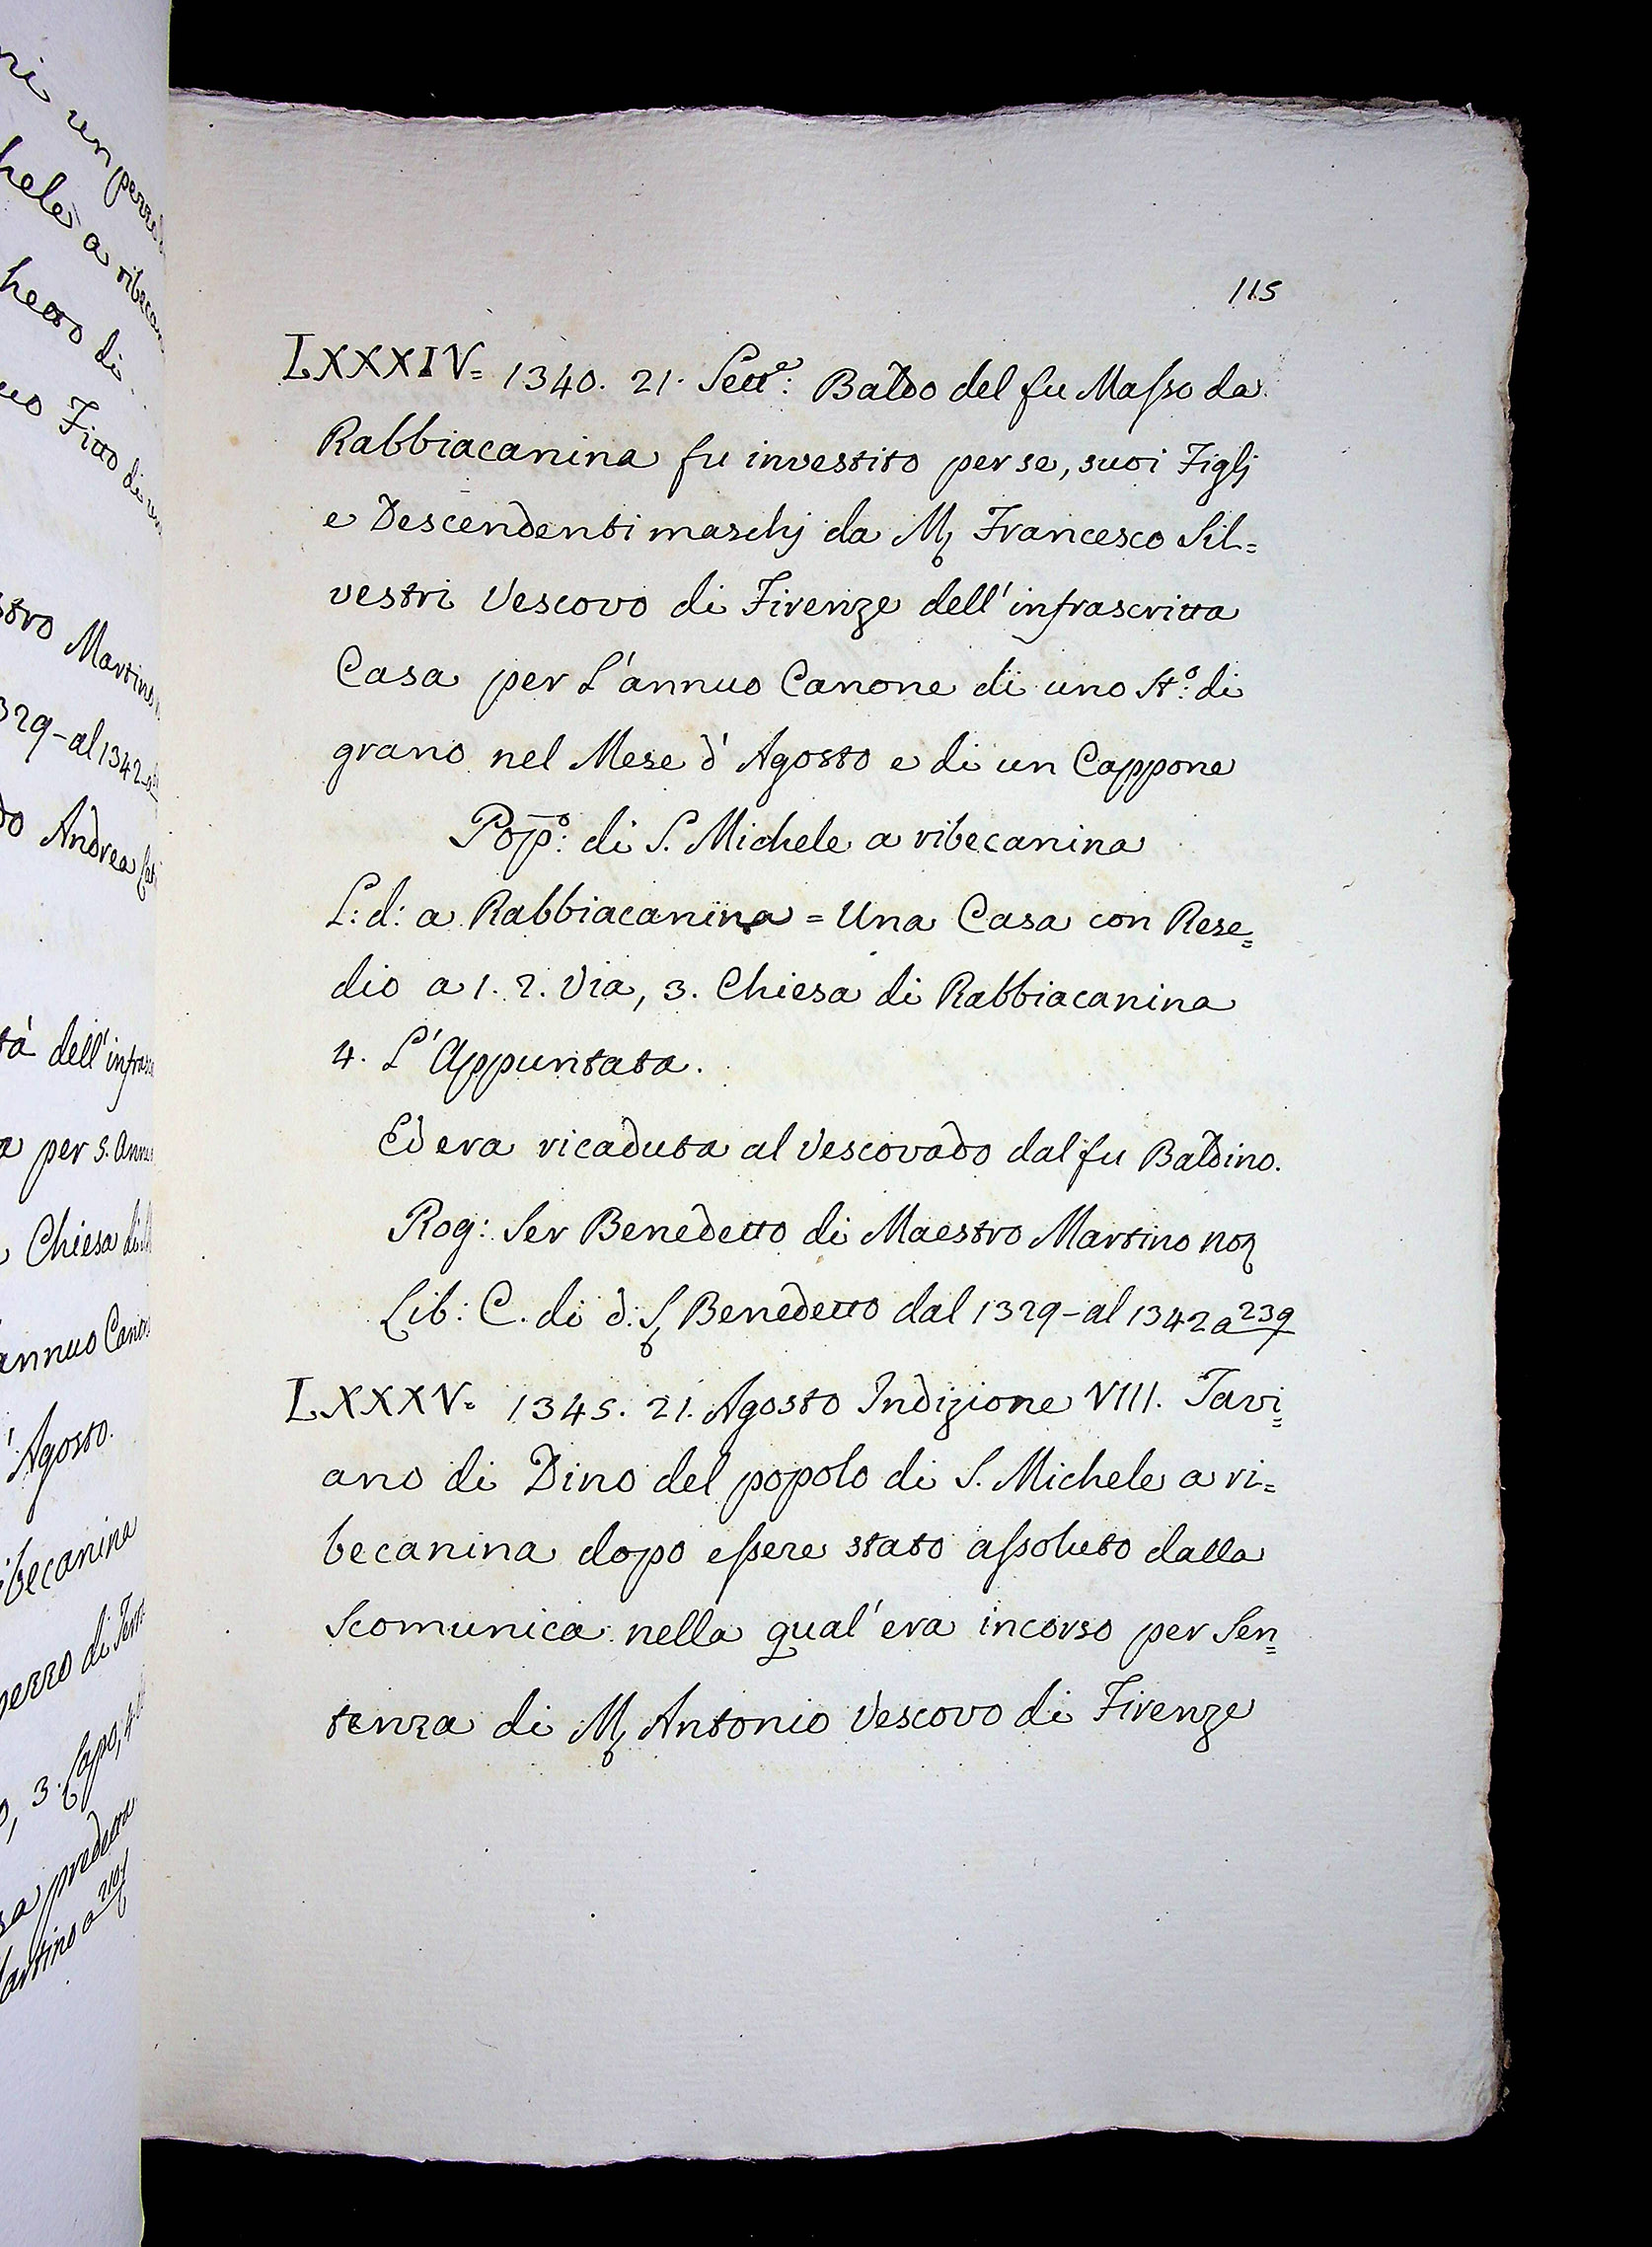 ni un pezzo
hele a ribecan
hetto di
uo Fitto di un
stro Martino
329-al 1342
do Andrea
tà dell'infras
a per s. Annu
Chiesa di
annuo Cano
d'Agosto.
ibecanina
pezzo di Terr
o, 3. Capo, 4
sa predetta
Martino a
115
LXXXIV= 1340. 21. Sett.e: Baldo del fu Maſso da
Rabbiacanina fu investito per se, suoi Figlj
e Descendenti maschj da M. Francesco Sil=
vestri Vescovo di Firenze dell'infrascritta
Casa per L'annuo Canone di uno St.o: di
grano nel Mese d'Agosto e di un Cappone
Pop.o: di S. Michele a ribecanina
L: d: a Rabbiacanina = Una Casa con Rese=
dio a 1. 2. Via, 3. Chiesa di Rabbiacanina
4. L'Appuntata.
Ed era ricaduta al Vescovado dal fu Baldino.
Rog: Ser Benedetto di Maestro Martino not
Lib: C. di d: S. Benedetto dal 1329-al 1342 a 239
LXXXV= 1345. 21. Agosto Indizione VIII. Tavi=
ano di Dino del popolo di S. Michele a ri=
becanina dopo eſsere stato aſsoluto dalla
Scomunica nella qual'era incorso per Sen=
tenza di M. Antonio Vescovo di Firenze